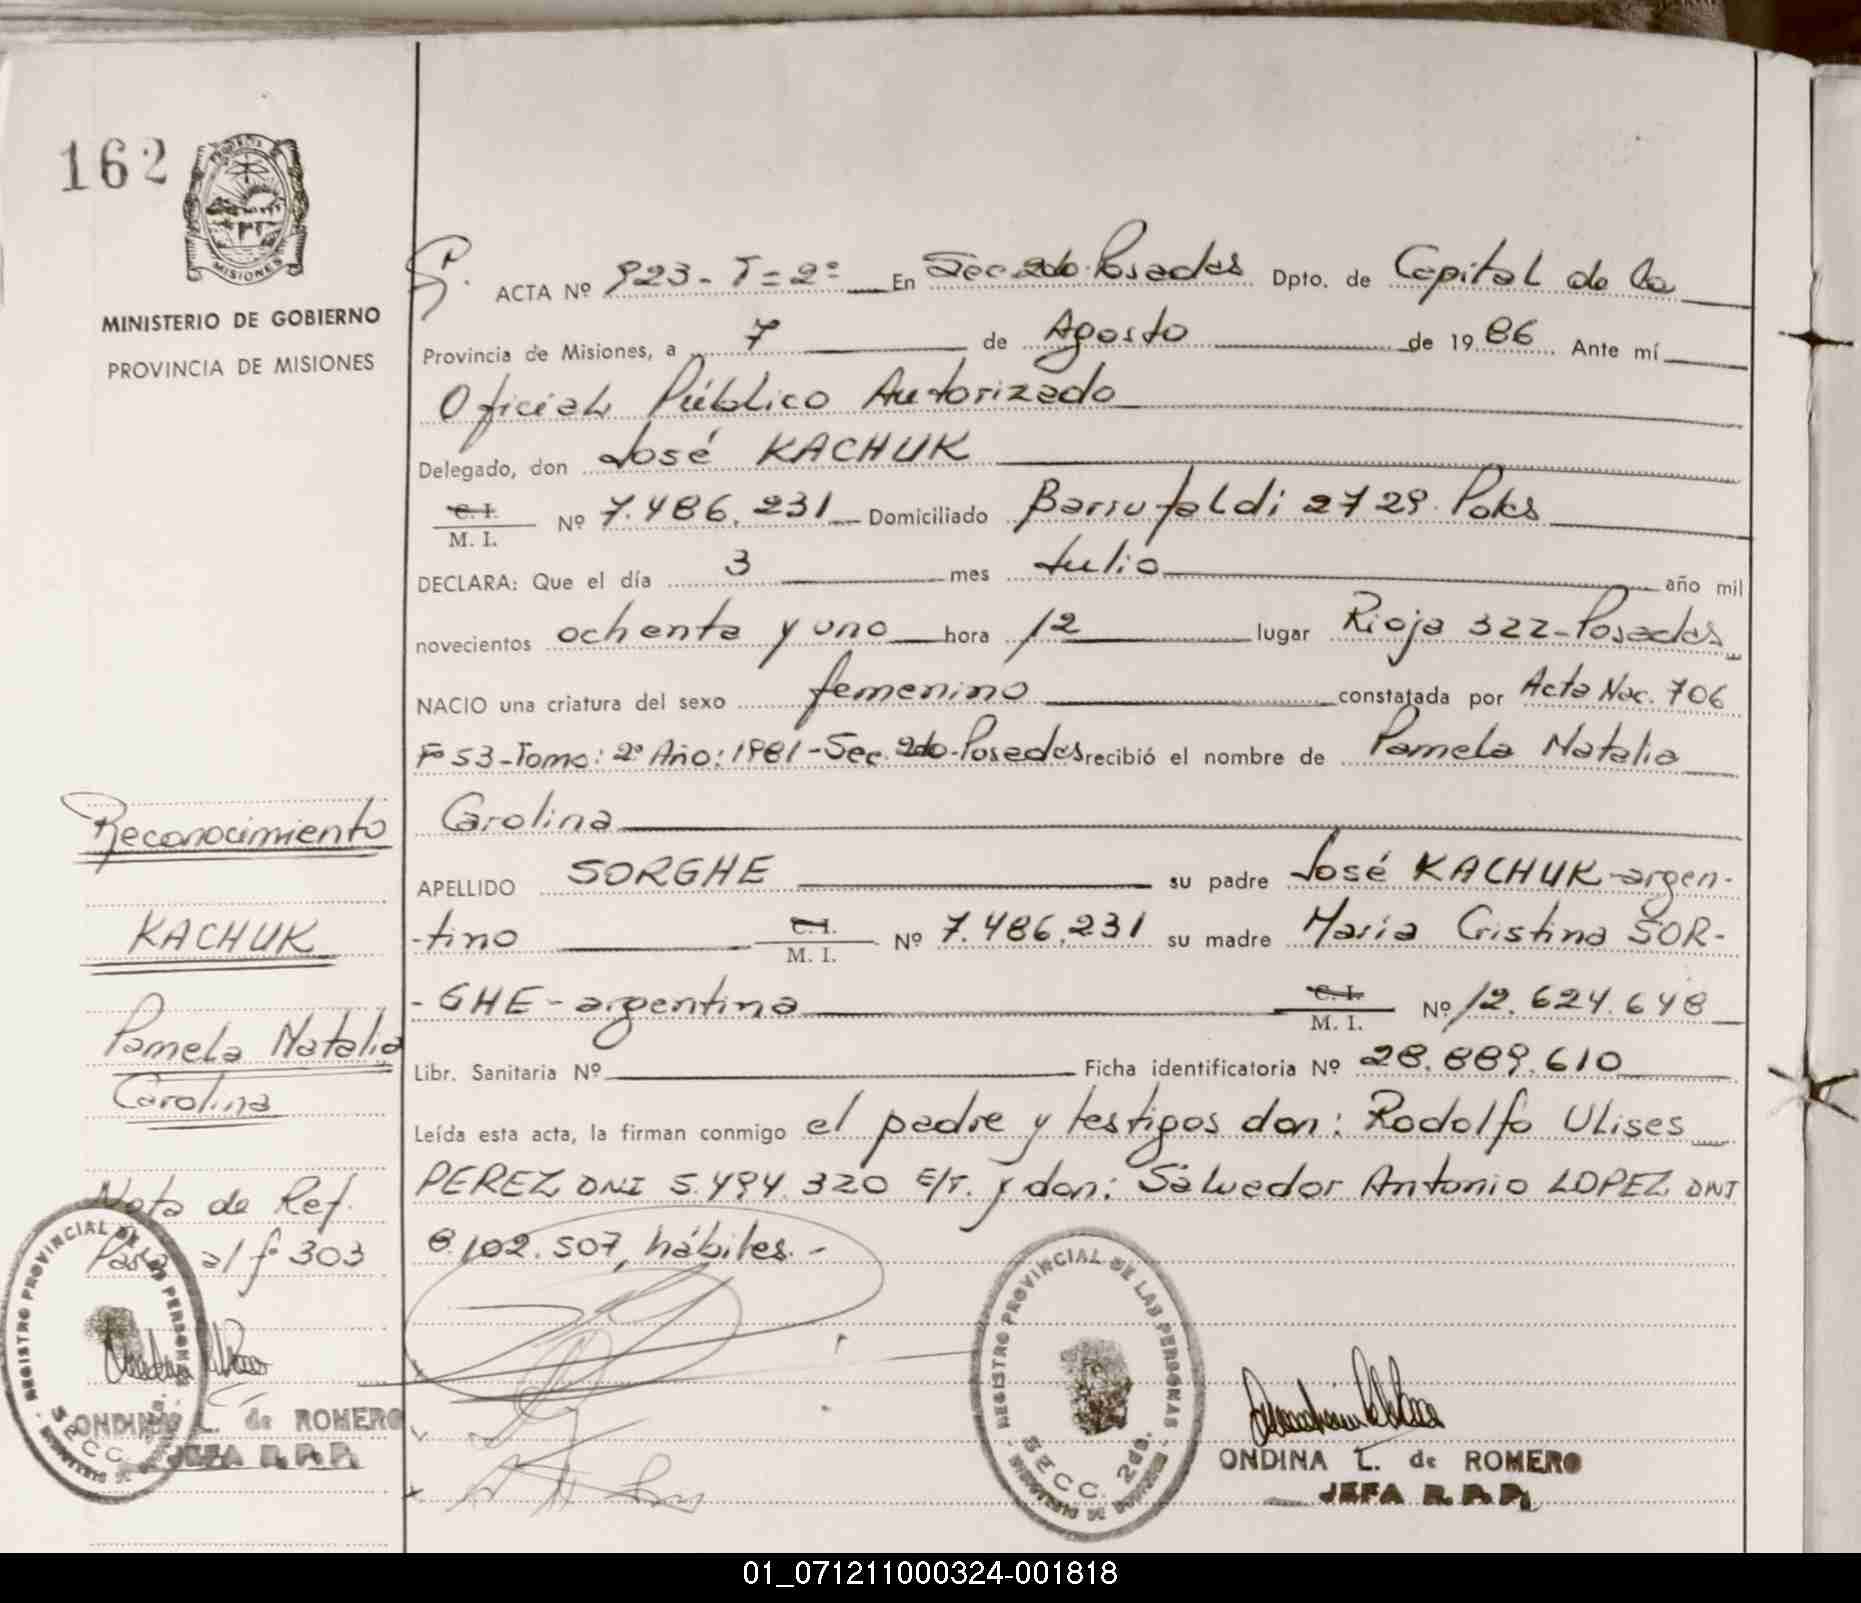 162
PROVINCIA DE
MISIONES
MINISTERIO DE GOBIERNO
PROVINCIA DE MISIONES
ACTA Nº 923 - T = 2º En Sec. 2do. Posadas Dpto. de Capital de la
Provincia de Misiones, a 7 de Agosto de 1986 Ante mí
Oficial Público Autorizado
Delegado, don José KACHUK
C. I.
M. I. Nº 7.486.231 Domiciliado Barrufaldi 2729. Pdas
DECLARA: Que el día 3 mes Julio año mil
novecientos ochenta y uno hora 12 lugar Rioja 322-Posadas
NACIO una criatura del sexo femenino constatada por Acta Nac. 706
Fº 53-Tomo: 2º Año: 1981-Sec. 2do-Posadas recibió el nombre de Pamela Natalia
Carolina
APELLIDO SORGHE su padre José KACHUK-argen-
-tino C. I.
M. I. Nº 7.486.231 su madre María Cristina SOR-
-GHE-argentina C. I.
M. I. Nº 12.624.648
Libr. Sanitaria Nº Ficha identificatoria Nº 28.889.610
Leída esta acta, la firman conmigo el padre y testigos don: Rodolfo Ulises
PEREZ DNI 5.494.320 E/T. y don: Salvador Antonio LOPEZ DNI
8.102.507, hábiles.-
Reconocimiento
KACHUK
Pamela Natalia
Carolina
Nota de Ref.
Pasa al fº 303
REGISTRO PROVINCIAL DE LAS PERSONAS
SECC. 2da.
ONDINA L. de ROMERO
JEFA R.P.P.
REGISTRO PROVINCIAL DE LAS PERSONAS
SECC. 2da.
ONDINA L. de ROMERO
JEFA R.P.P.
01_071211000324-001818